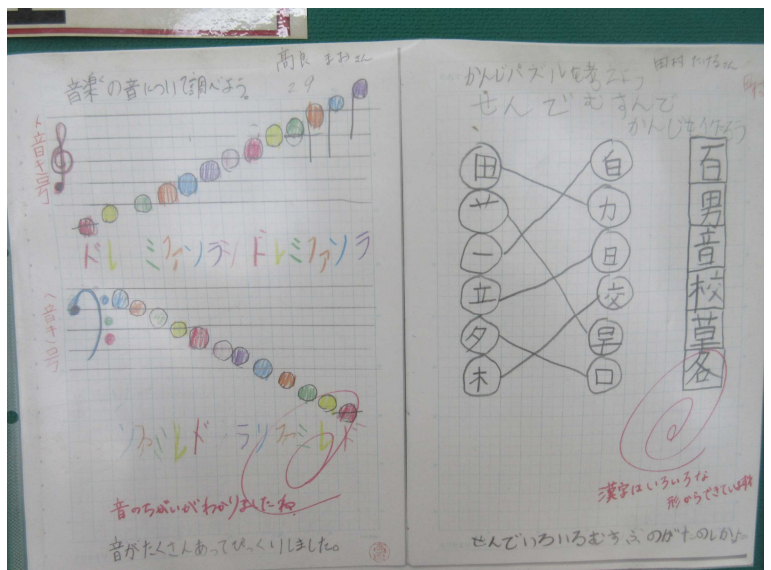 高良 まおさん
音楽の音について調べよう。
ト音き号
ドレミファソラシドレミファソラ
ヘ音き号
ソファミレド ラソファミレド
音のちがいがわかりましたね
音がたくさんあってびっくりしました。
かんじパズルを考えよう
せんでむすんで
かんじを作ろう
田 自
艹 力
一 日
立 交
夕 早
木 口
百
男
音
校
草
各
漢字はいろいろな
形からできていますね
せんでいろいろむすぶのがたのしかった